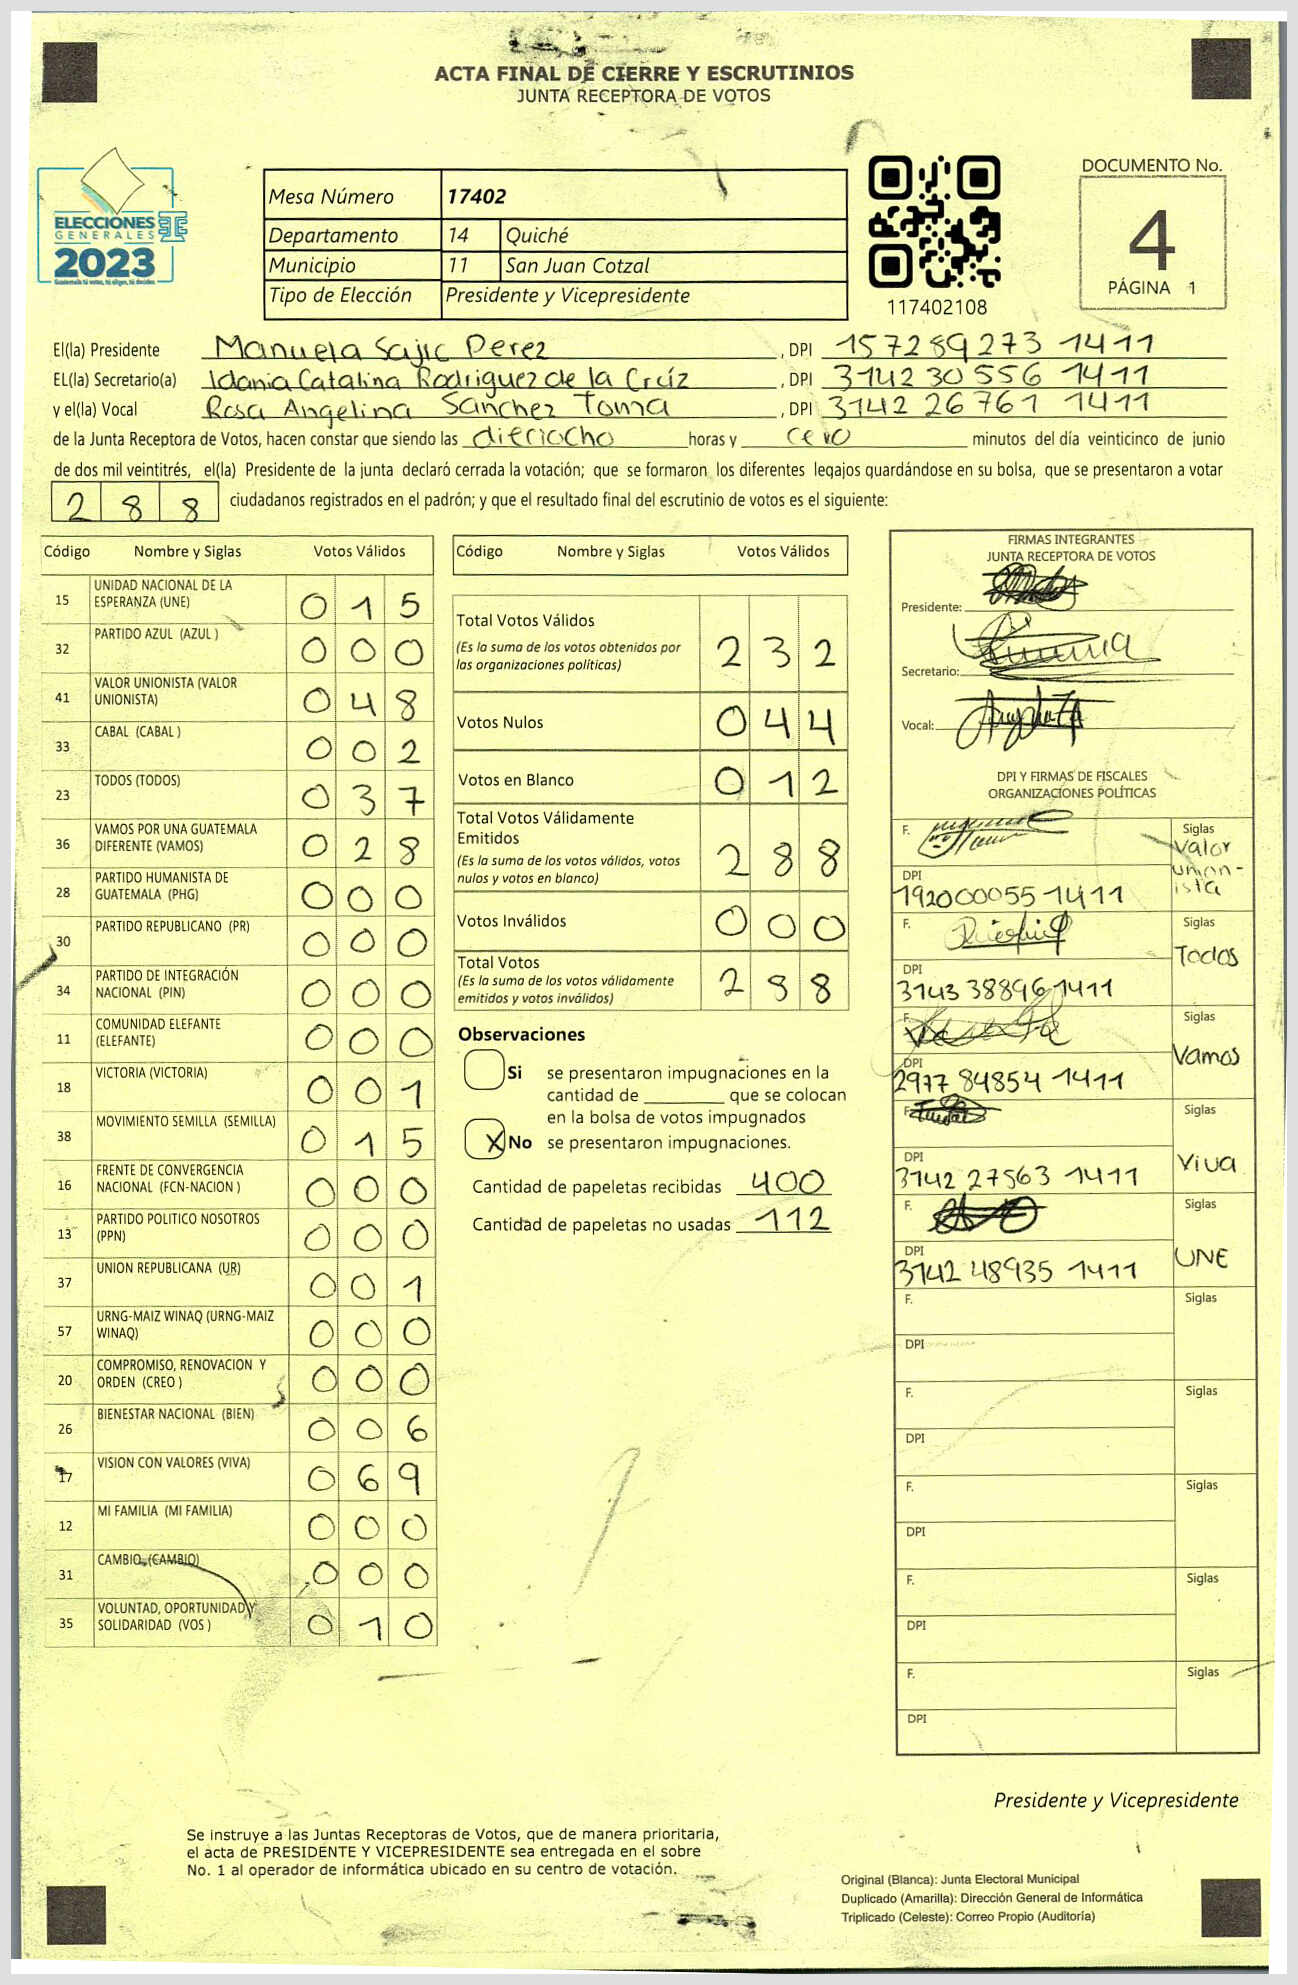 ACTA FINAL DE CIERRE Y ESCRUTINIOS
JUNTA RECEPTORA DE VOTOS
ELECCIONES
GENERALES
2023
Guatemala tú votas, tú eliges, tú decides
Mesa Número 17402
Departamento 14 Quiché
Municipio 11 San Juan Cotzal
Tipo de Elección Presidente y Vicepresidente
117402108
DOCUMENTO No.
4
PÁGINA 1
El(la) Presidente Manuela Sajic Perez , DPI 157289273 1411
EL(la) Secretario(a) Idania Catalina Rodriguez de la Cruz , DPI 3142 30556 1411
y el(la) Vocal Rosa Angelina Sanchez Toma , DPI 3142 26761 1411
de la Junta Receptora de Votos, hacen constar que siendo las dieciocho horas y cero minutos del día veinticinco de junio
de dos mil veintitrés, el(la) Presidente de la junta declaró cerrada la votación; que se formaron los diferentes legajos guardándose en su bolsa, que se presentaron a votar
288 ciudadanos registrados en el padrón; y que el resultado final del escrutinio de votos es el siguiente:
Código Nombre y Siglas Votos Válidos
15 UNIDAD NACIONAL DE LA ESPERANZA (UNE) 0 1 5
32 PARTIDO AZUL (AZUL ) 0 0 0
41 VALOR UNIONISTA (VALOR UNIONISTA) 0 4 8
33 CABAL (CABAL ) 0 0 2
23 TODOS (TODOS) 0 3 7
36 VAMOS POR UNA GUATEMALA DIFERENTE (VAMOS) 0 2 8
28 PARTIDO HUMANISTA DE GUATEMALA (PHG) 0 0 0
30 PARTIDO REPUBLICANO (PR) 0 0 0
34 PARTIDO DE INTEGRACIÓN NACIONAL (PIN) 0 0 0
11 COMUNIDAD ELEFANTE (ELEFANTE) 0 0 0
18 VICTORIA (VICTORIA) 0 0 1
38 MOVIMIENTO SEMILLA (SEMILLA) 0 1 5
16 FRENTE DE CONVERGENCIA NACIONAL (FCN-NACION ) 0 0 0
13 PARTIDO POLITICO NOSOTROS (PPN) 0 0 0
37 UNION REPUBLICANA (UR) 0 0 1
57 URNG-MAIZ WINAQ (URNG-MAIZ WINAQ) 0 0 0
20 COMPROMISO, RENOVACION Y ORDEN (CREO ) 0 0 0
26 BIENESTAR NACIONAL (BIEN) 0 0 6
17 VISION CON VALORES (VIVA) 0 6 9
12 MI FAMILIA (MI FAMILIA) 0 0 0
31 CAMBIO (CAMBIO) 0 0 0
35 VOLUNTAD, OPORTUNIDAD Y SOLIDARIDAD (VOS ) 0 1 0
Código Nombre y Siglas Votos Válidos
Total Votos Válidos 2 3 2
(Es la suma de los votos obtenidos por
las organizaciones políticas)
Votos Nulos 0 4 4
Votos en Blanco 0 1 2
Total Votos Válidamente
Emitidos 2 8 8
(Es la suma de los votos válidos, votos
nulos y votos en blanco)
Votos Inválidos 0 0 0
Total Votos 2 8 8
(Es la suma de los votos válidamente
emitidos y votos inválidos)
Observaciones
Si se presentaron impugnaciones en la
cantidad de ________ que se colocan
en la bolsa de votos impugnados
X No se presentaron impugnaciones.
Cantidad de papeletas recibidas 400
Cantidad de papeletas no usadas 112
FIRMAS INTEGRANTES
JUNTA RECEPTORA DE VOTOS
Presidente:
Secretario:
Vocal:
DPI Y FIRMAS DE FISCALES
ORGANIZACIONES POLÍTICAS
F. Siglas
Valor
unionista
DPI
192000055 1411
F. Siglas
Todos
DPI
3143 38896 1411
F. Siglas
Vamos
DPI
2977 84854 1411
F. Siglas
Viva
DPI
3142 27563 1411
F. Siglas
UNE
DPI
3142 48935 1411
F. Siglas
DPI
F. Siglas
DPI
F. Siglas
DPI
F. Siglas
DPI
F. Siglas
DPI
Presidente y Vicepresidente
Se instruye a las Juntas Receptoras de Votos, que de manera prioritaria,
el acta de PRESIDENTE Y VICEPRESIDENTE sea entregada en el sobre
No. 1 al operador de informática ubicado en su centro de votación.
Original (Blanca): Junta Electoral Municipal
Duplicado (Amarilla): Dirección General de Informática
Triplicado (Celeste): Correo Propio (Auditoría)